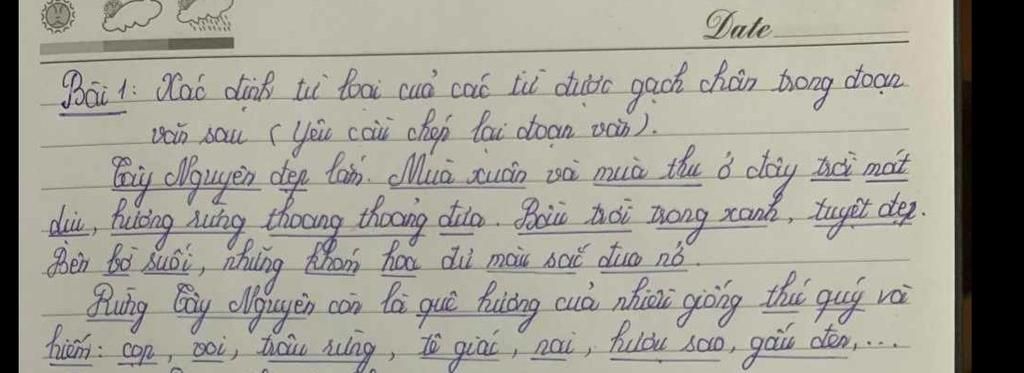 Date
Bài 1: Xác định từ loại của các từ được gạch chân trong đoạn
văn sau (Yêu cầu chép lại đoạn văn).
Tây Nguyên đẹp lắm. Mùa xuân và mùa thu ở đây trời mát
dịu, hương rừng thoang thoảng đưa. Bầu trời trong xanh, tuyệt đẹp.
Bên bờ suối, những khóm hoa đủ màu sắc đua nở.
Rừng Tây Nguyên còn là quê hương của nhiều giống thú quý và
hiếm: cọp, voi, trâu rừng, tê giác, nai, hươu sao, gấu đen,...